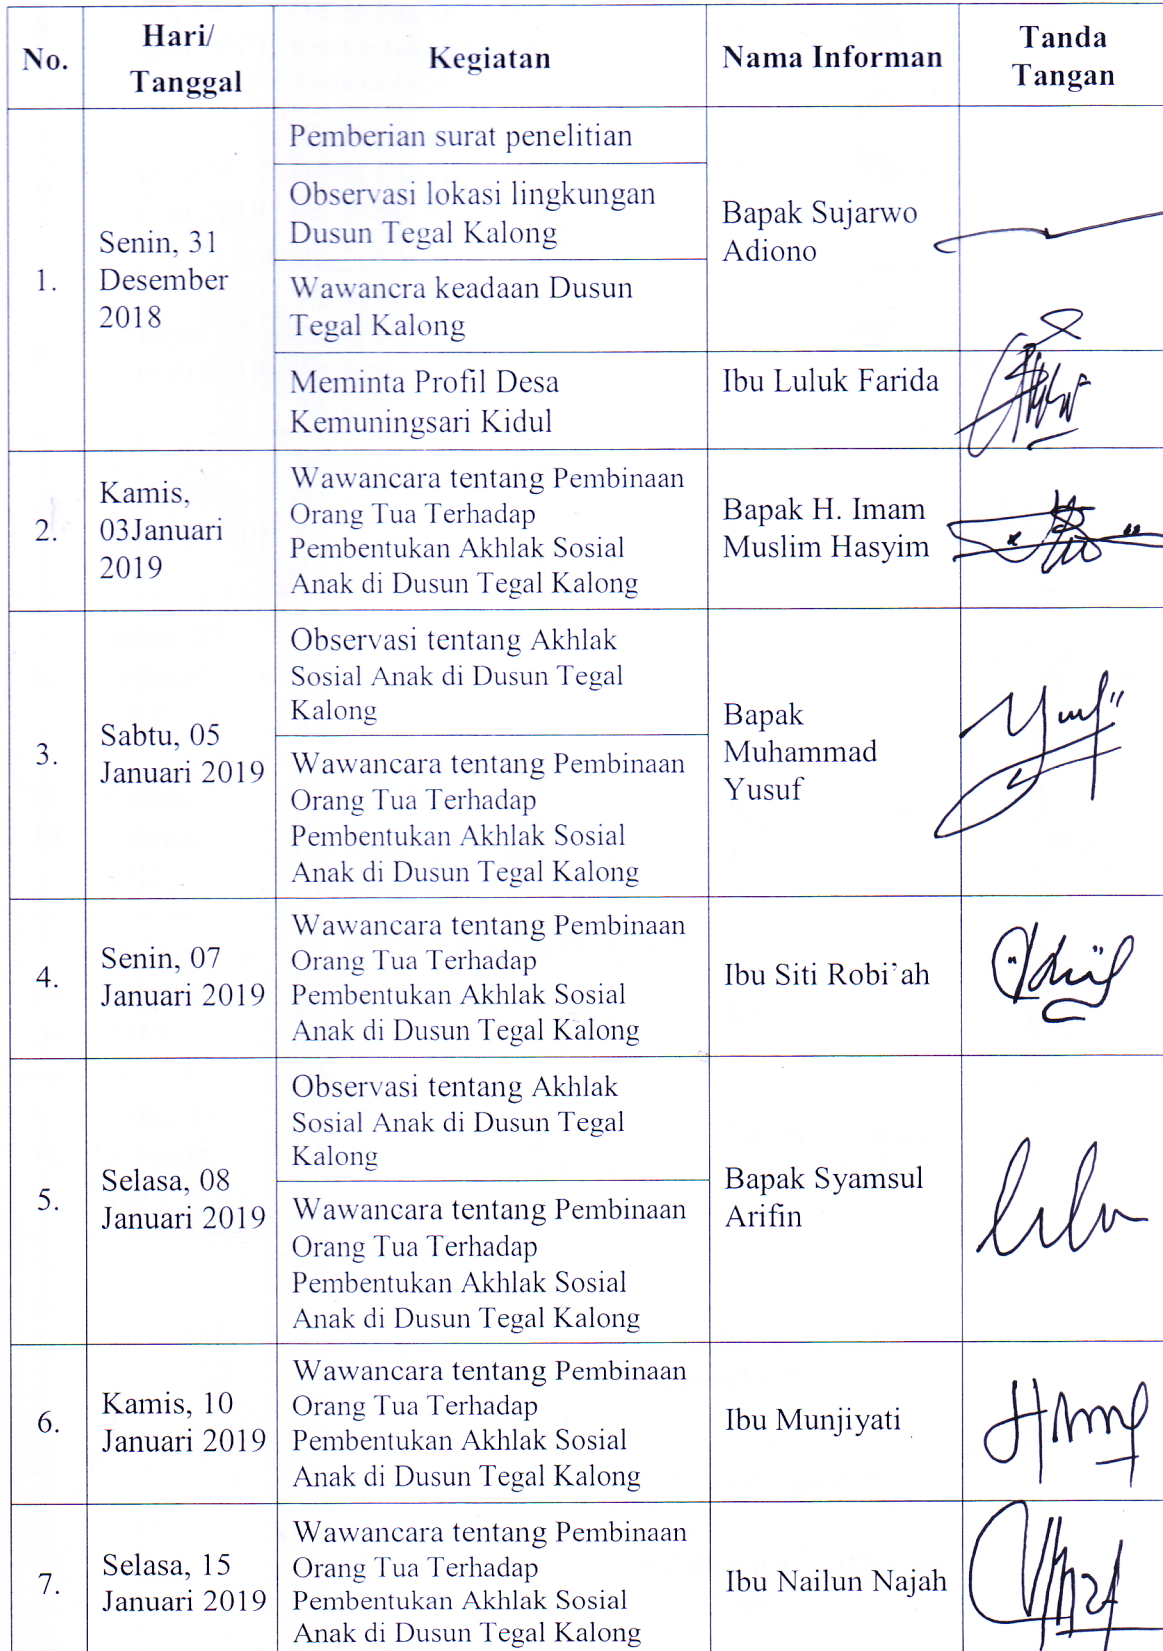 No.
Hari/
Tanggal
Kegiatan
Nama Informan
Tanda
Tangan
1.
Senin, 31
Desember
2018
Pemberian surat penelitian
Observasi lokasi lingkungan
Dusun Tegal Kalong
Wawancra keadaan Dusun
Tegal Kalong
Bapak Sujarwo
Adiono
Meminta Profil Desa
Kemuningsari Kidul
Ibu Luluk Farida
2.
Kamis,
03Januari
2019
Wawancara tentang Pembinaan
Orang Tua Terhadap
Pembentukan Akhlak Sosial
Anak di Dusun Tegal Kalong
Bapak H. Imam
Muslim Hasyim
3.
Sabtu, 05
Januari 2019
Observasi tentang Akhlak
Sosial Anak di Dusun Tegal
Kalong
Wawancara tentang Pembinaan
Orang Tua Terhadap
Pembentukan Akhlak Sosial
Anak di Dusun Tegal Kalong
Bapak
Muhammad
Yusuf
4.
Senin, 07
Januari 2019
Wawancara tentang Pembinaan
Orang Tua Terhadap
Pembentukan Akhlak Sosial
Anak di Dusun Tegal Kalong
Ibu Siti Robi'ah
5.
Selasa, 08
Januari 2019
Observasi tentang Akhlak
Sosial Anak di Dusun Tegal
Kalong
Wawancara tentang Pembinaan
Orang Tua Terhadap
Pembentukan Akhlak Sosial
Anak di Dusun Tegal Kalong
Bapak Syamsul
Arifin
6.
Kamis, 10
Januari 2019
Wawancara tentang Pembinaan
Orang Tua Terhadap
Pembentukan Akhlak Sosial
Anak di Dusun Tegal Kalong
Ibu Munjiyati
7.
Selasa, 15
Januari 2019
Wawancara tentang Pembinaan
Orang Tua Terhadap
Pembentukan Akhlak Sosial
Anak di Dusun Tegal Kalong
Ibu Nailun Najah